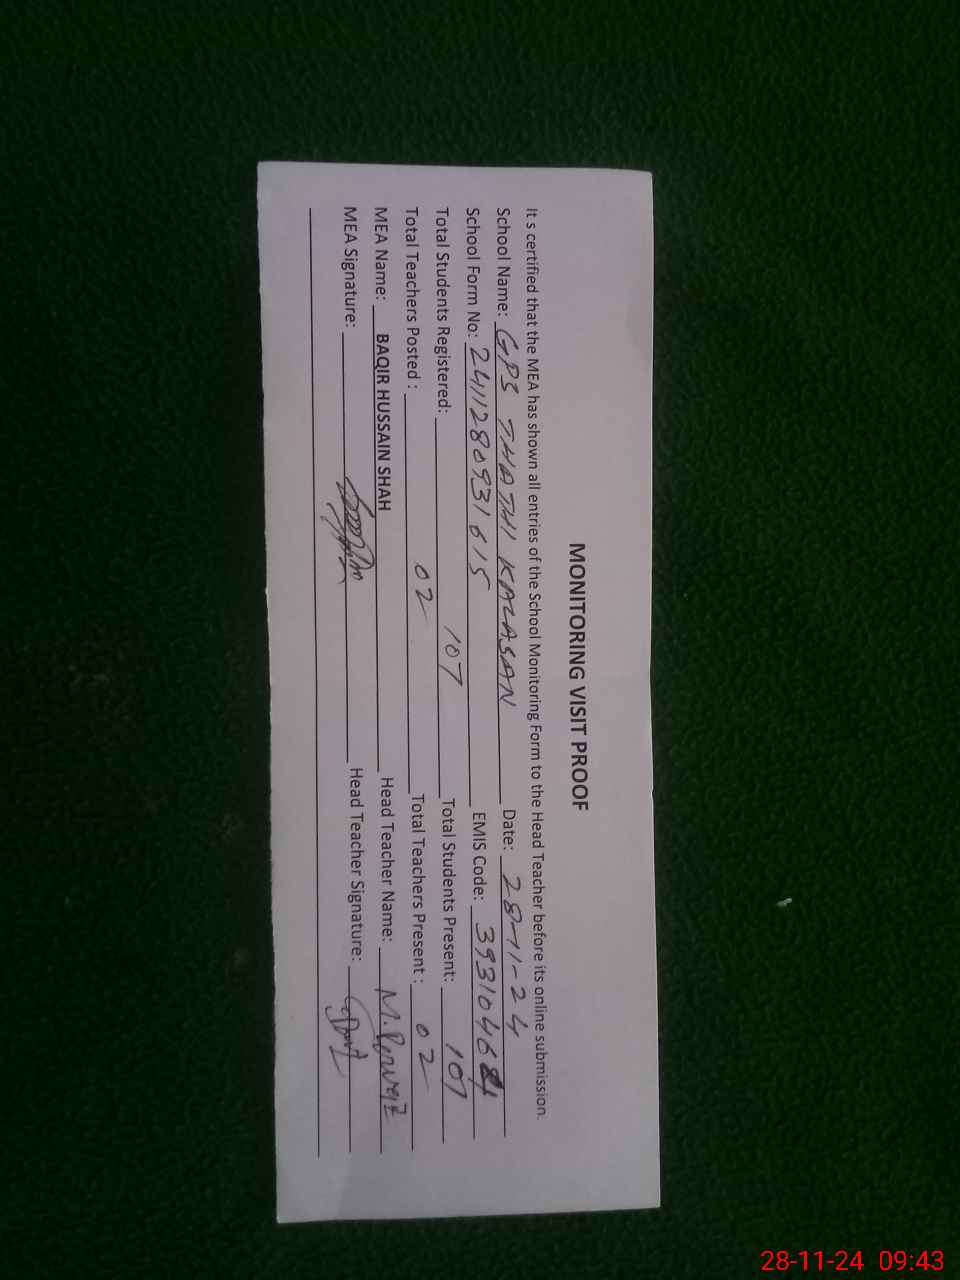 MONITORING VISIT PROOF
It s certified that the MEA has shown all entries of the School Monitoring Form to the Head Teacher before its online submission.
School Name: GPS THATHI KALASAN Date: 28-11-24
School Form No: 2411280931615 EMIS Code: 3931046
Total Students Registered: 107 Total Students Present: 107
Total Teachers Posted : 02 Total Teachers Present : 02
MEA Name: BAQIR HUSSAIN SHAH Head Teacher Name: M. Pervez
MEA Signature: Head Teacher Signature:
28-11-24 09:43